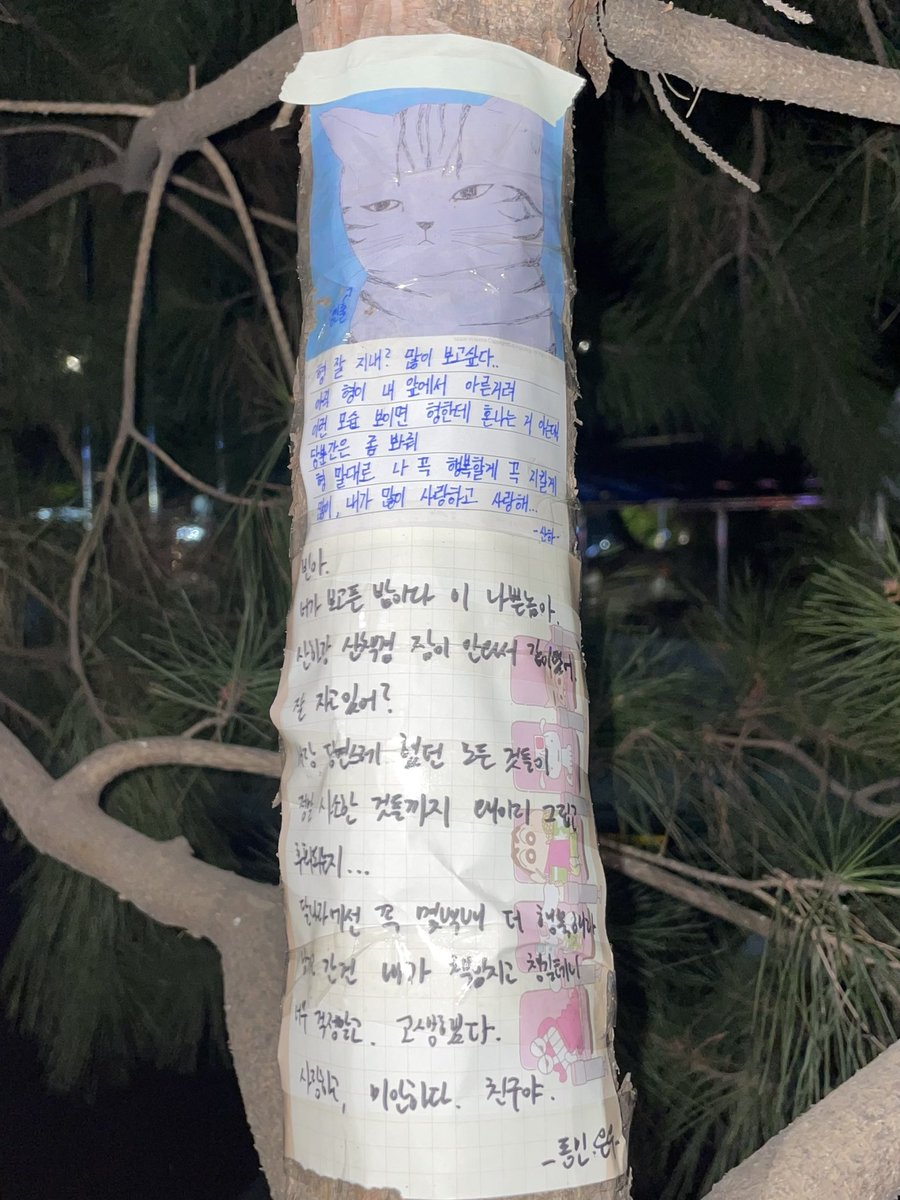 형 잘 지내? 많이 보고싶다..
아직 형이 내 앞에서 아른거려
이런 모습 보이면 형한테 혼나는 거 아는데
당분간은 좀 봐줘
형 말대로 나 꼭 행복할게 꼭 지킬게
많이, 내가 많이 사랑하고 사랑해...
-산하-
빈아.
너가 보고든 밤하다 이 나쁜놈아.
산하랑 산책겸 잠이 안와서 같이왔어.
잘 자고있어?
당연스레 했던 모든 것들이
정말 사소한 것들까지 왜이리 그립고
후회되는지...
달나라에선 꼭 몇백배 더 행복해라
간건 내가 책임지고 챙길테니
너무 걱정말고. 고생했다.
사랑하고, 미안하다. 친구야.
-동빈